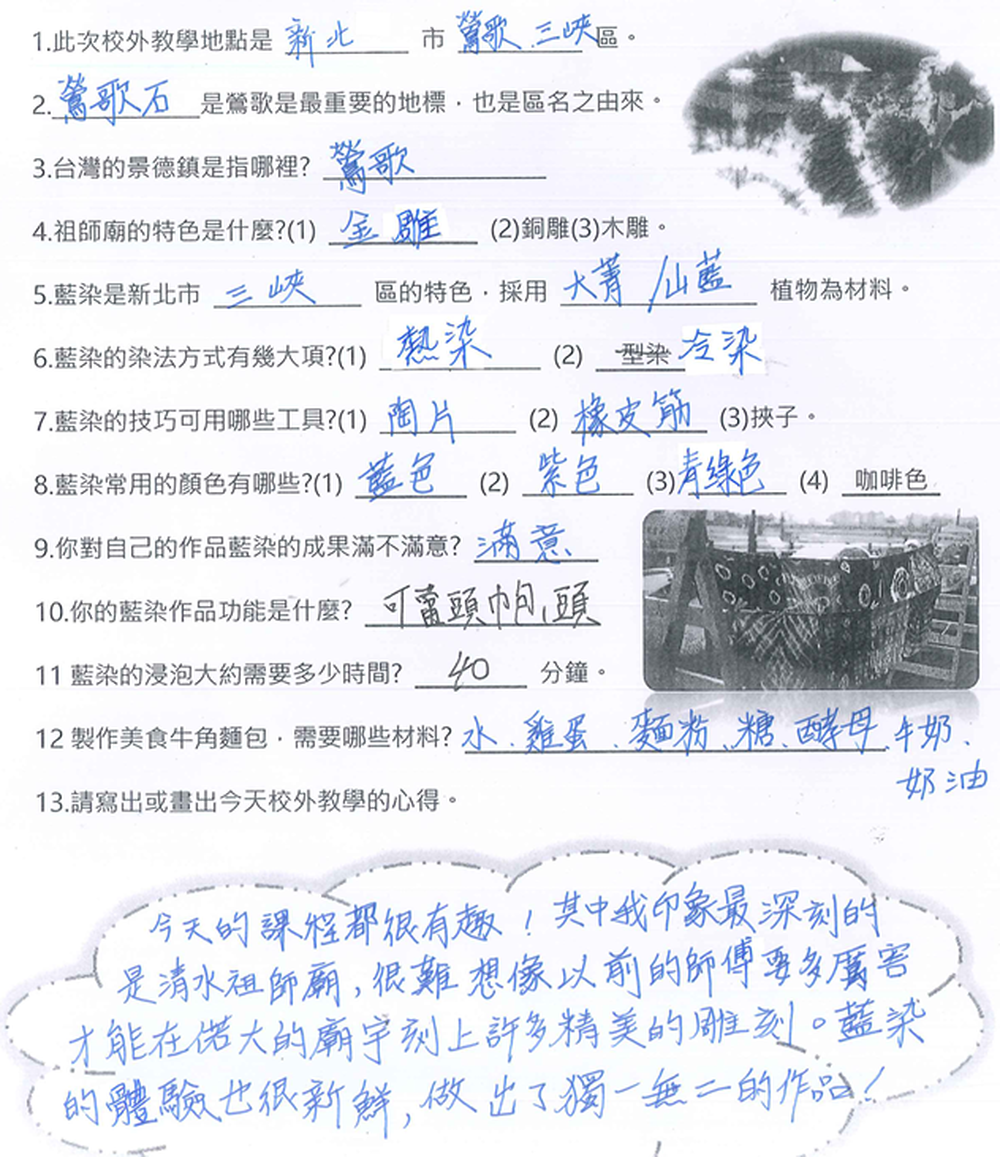 1.此次校外教學地點是 新北 市 鶯歌、三峽區。
2.鶯歌石是鶯歌是最重要的地標，也是區名之由來。
3.台灣的景德鎮是指哪裡? 鶯歌
4.祖師廟的特色是什麼?(1) 金雕 (2)銅雕(3)木雕。
5.藍染是新北市 三峽 區的特色，採用 大菁/山藍 植物為材料。
6.藍染的染法方式有幾大項?(1) 熱染 (2) 型染 冷染
7.藍染的技巧可用哪些工具?(1) 陶片 (2) 橡皮筋 (3)挾子。
8.藍染常用的顏色有哪些?(1) 藍色 (2) 紫色 (3)青綠色 (4) 咖啡色
9.你對自己的作品藍染的成果滿不滿意? 滿意
10.你的藍染作品功能是什麼? 可當頭巾包頭
11 藍染的浸泡大約需要多少時間? 40 分鐘。
12 製作美食牛角麵包，需要哪些材料? 水、雞蛋、麵粉、糖、酵母、牛奶、
奶油
13.請寫出或畫出今天校外教學的心得。
今天的課程都很有趣！其中我印象最深刻的
是清水祖師廟，很難想像以前的師傅要多厲害
才能在偌大的廟宇刻上許多精美的雕刻。藍染
的體驗也很新鮮，做出了獨一無二的作品！